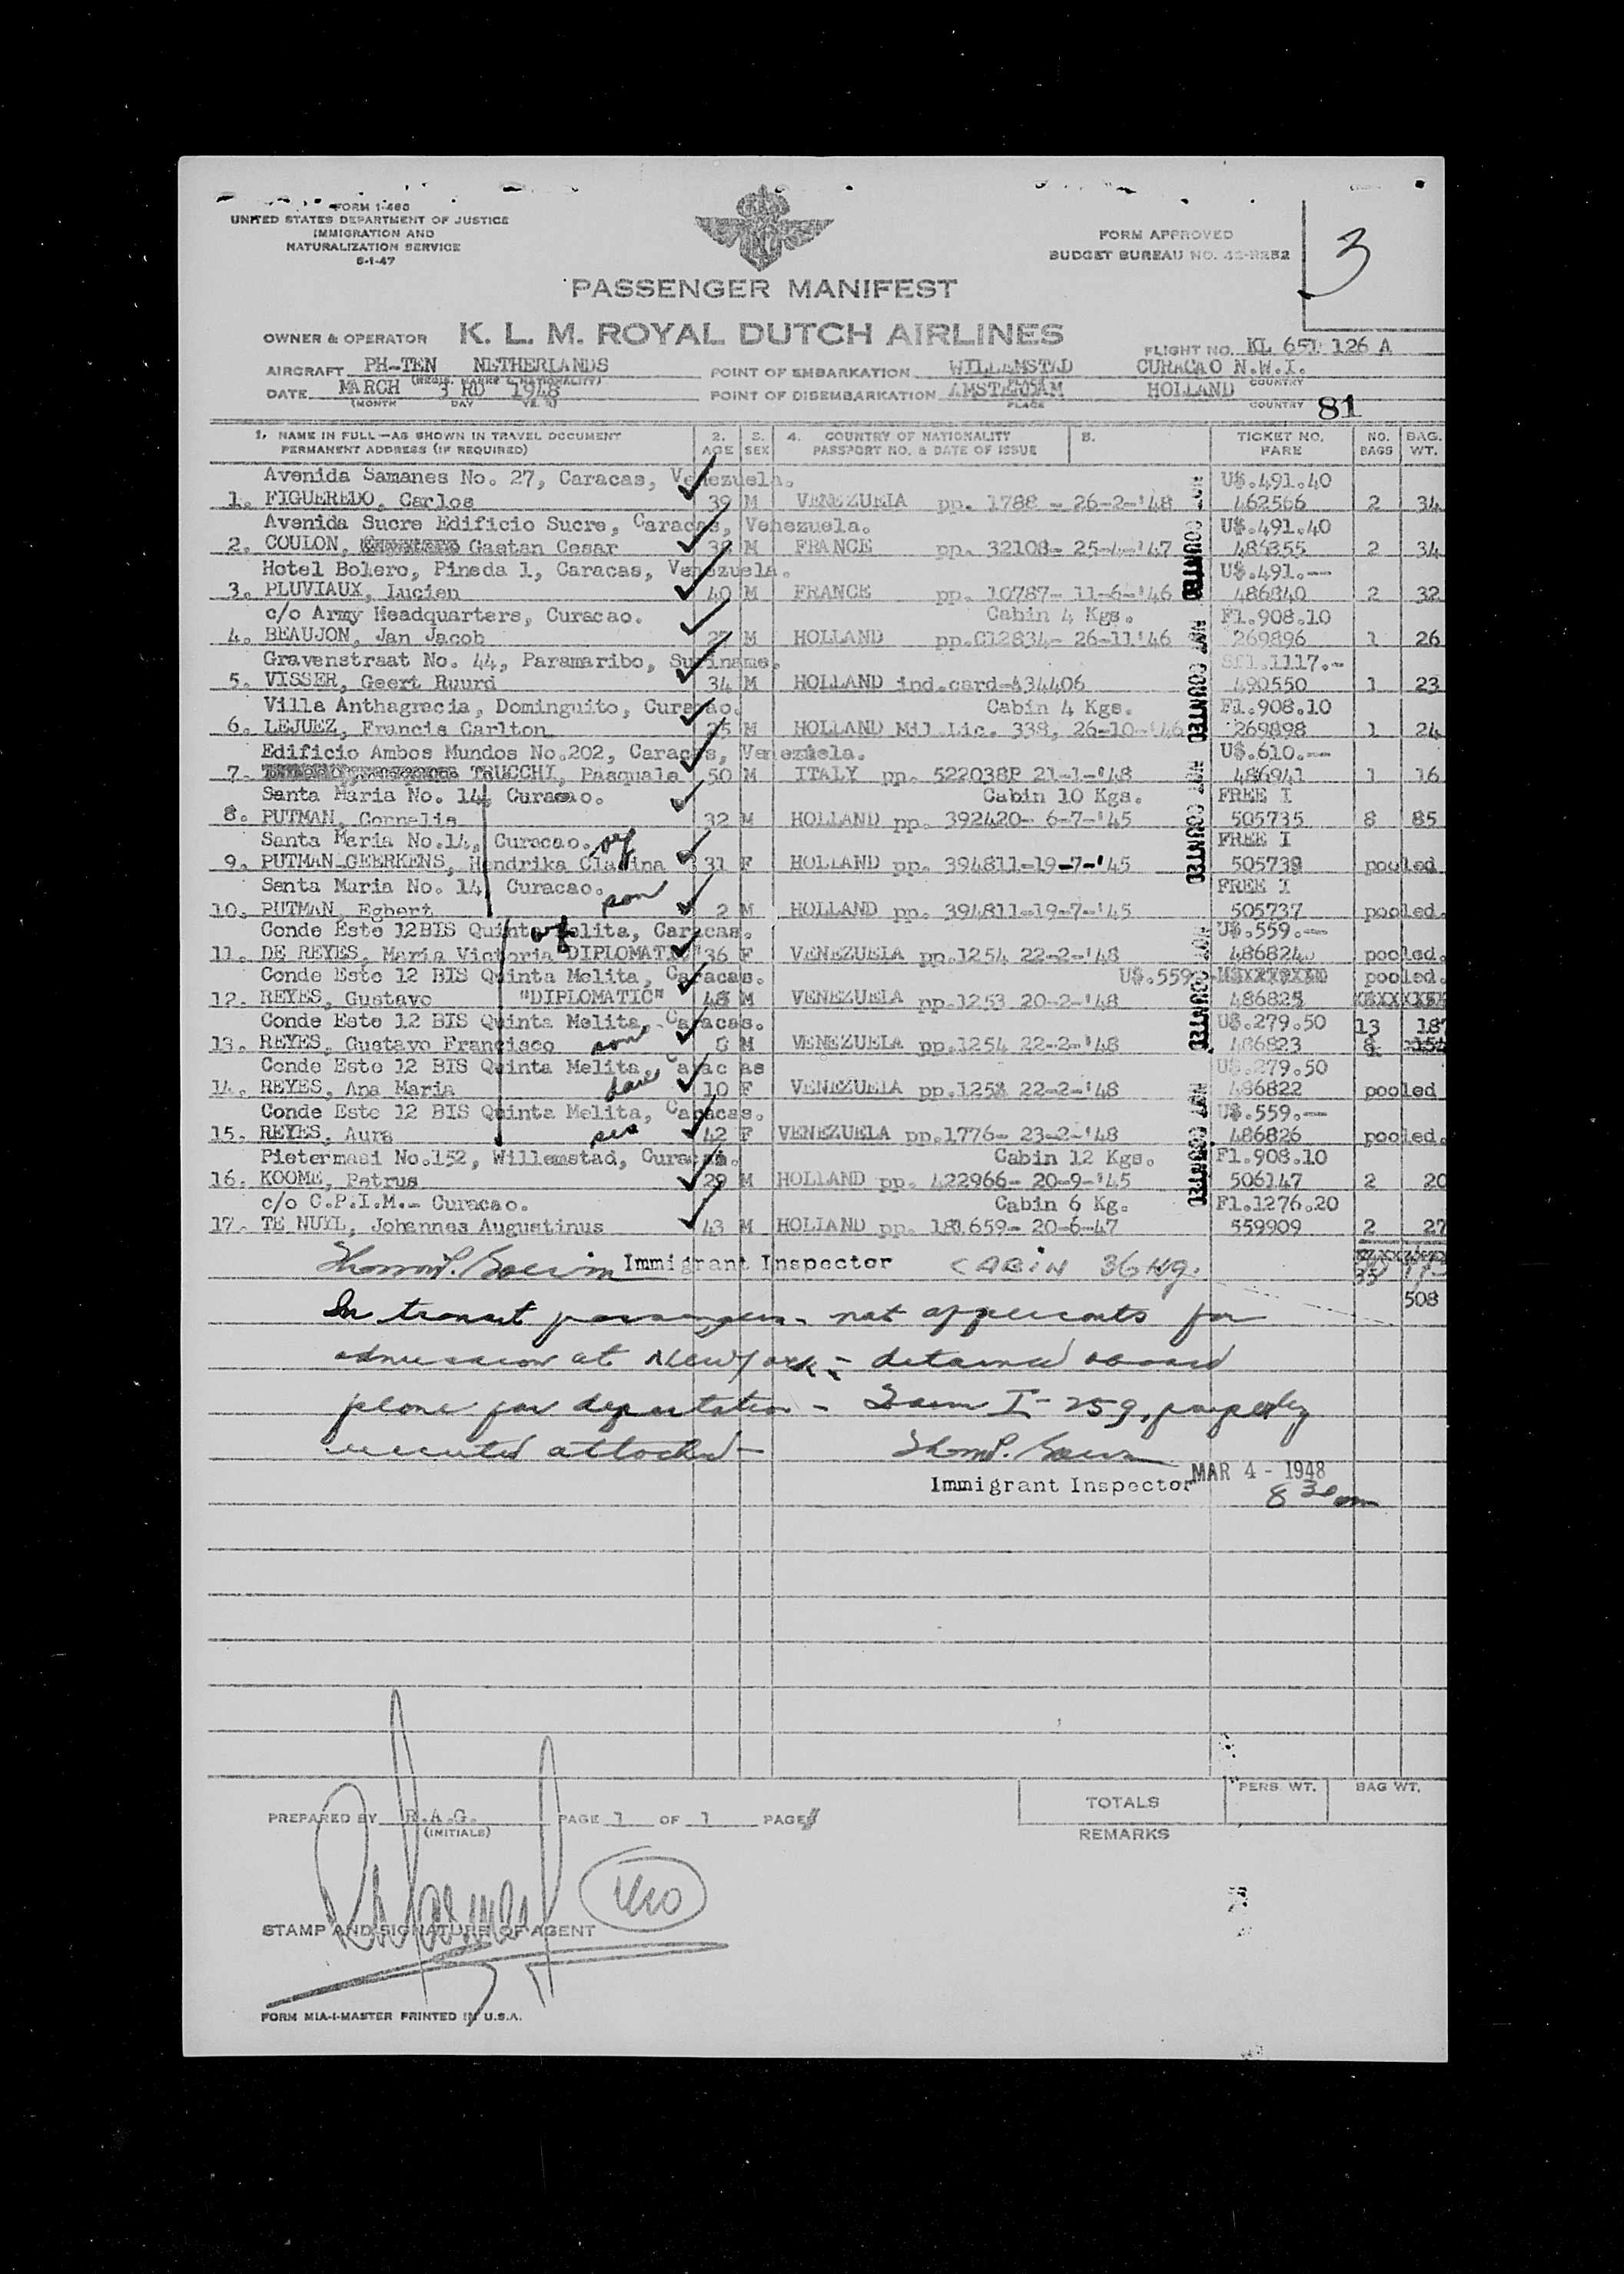 FORM I-466
UNITED STATES DEPARTMENT OF JUSTICE
IMMIGRATION AND
NATURALIZATION SERVICE
6-1-47
FORM APPROVED
BUDGET BUREAU NO. 43-R252
3
PASSENGER MANIFEST
OWNER & OPERATOR K. L. M. ROYAL DUTCH AIRLINES
FLIGHT NO. KL 651 126 A
AIRCRAFT PH-TEN NETHERLANDS POINT OF EMBARKATION WILLEMSTAD CURACAO N.W.I.
DATE MARCH 3 RD 1948 POINT OF DISEMBARKATION AMSTERDAM HOLLAND
(MONTH DAY YR.) PLACE COUNTRY 81
1. NAME IN FULL—AS SHOWN IN TRAVEL DOCUMENT 2. 3. 4. COUNTRY OF NATIONALITY 5. TICKET NO. NO. BAG.
PERMANENT ADDRESS (IF REQUIRED) AGE SEX PASSPORT NO. & DATE OF ISSUE FARE BAGS WT.
Avenida Samanes No. 27, Caracas, Venezuela. U$.491.40
1. FIGUEREDO, Carlos 39 M VENEZUELA pp. 1788 - 26-2-'48 462566 2 34
Avenida Sucre Edificio Sucre, Caracas, Venezuela. U$.491.40
2. COULON, Gaetan Cesar M FRANCE pp. 32108- 25-4-'47 486355 2 34
Hotel Bolero, Pineda 1, Caracas, Venezuela. U$.491.--
3. PLUVIAUX, Lucien 40 M FRANCE pp. 10787- 11-6-'46 486840 2 32
c/o Army Headquarters, Curacao. Cabin 4 Kgs. Fl.908.10
4. BEAUJON, Jan Jacob M HOLLAND pp.C12834- 26-11'46 269896 1 26
Gravenstraat No. 44, Paramaribo, Suriname. Sfl.1117.-
5. VISSER, Geert Ruurd 34 M HOLLAND ind.card-A34406 490550 1 23
Villa Anthagracia, Dominguito, Curacao. Cabin 4 Kgs. Fl.908.10
6. LEJUEZ, Francis Carlton 25 M HOLLAND Mil.Lic. 338, 26-10-'46 269898 1 24
Edificio Ambos Mundos No.202, Caracas, Venezuela. U$.610.--
7. TRUCCHI, Pasquale 50 M ITALY pp. 522038P 21-1-'48 486941 1 16
Santa Maria No. 14, Curacao. Cabin 10 Kgs. FREE I
8. PUTMAN, Cornelis 32 M HOLLAND pp. 392420- 6-7-'45 505735 8 85
Santa Maria No.14, Curacao. wf FREE I
9. PUTMAN-GEERKENS, Hendrika Clasina 31 F HOLLAND pp. 394811-19-7-'45 505738 pooled
Santa Maria No. 14 Curacao. son FREE I
10. PUTMAN, Egbert 2 M HOLLAND pp. 394811-19-7-'45 505737 pooled.
Conde Este 12BIS Quinta Melita, Caracas. wf U$.559.--
11. DE REYES, Maria Victoria "DIPLOMATIC" 36 F VENEZUELA pp.1254 22-2-'48 486824 pooled.
Conde Este 12 BIS Quinta Melita, Caracas. U$.559 pooled.
12. REYES, Gustavo "DIPLOMATIC" 48 M VENEZUELA pp.1253 20-2-'48 486825
Conde Este 12 BIS Quinta Melita, Caracas. U$.279.50 13 187
13. REYES, Gustavo Francisco son 8 M VENEZUELA pp.1254 22-2-'48 486823
Conde Este 12 BIS Quinta Melita, Carac as U$.279.50
14. REYES, Ana Maria dau 10 F VENEZUELA pp.1254 22-2-'48 486822 pooled
Conde Este 12 BIS Quinta Melita, Caracas. U$.559.--
15. REYES, Aura sis 42 F VENEZUELA pp.1776- 23-2-'48 486826 pooled.
Pietermaai No.152, Willemstad, Curacao. Cabin 12 Kgs. Fl.908.10
16. KOOME, Petrus 29 M HOLLAND pp. 422966- 20-9-'45 506147 2 20
c/o C.P.I.M.- Curacao. Cabin 6 Kg. Fl.1276.20
17. TE NUYL, Johannes Augustinus 43 M HOLLAND pp. 181.659- 20-6-47 559909 2 27
Immigrant Inspector CABIN 36 Kg. 35
508
In transit passengers - not applicants for
admission at New York - detained aboard
plane for deportation - Form I-259, properly
executed attached -
Immigrant Inspector MAR 4 - 1948
8 30 am
PERS. WT. BAG WT.
TOTALS
PREPARED BY R.A.G. PAGE 1 OF 1 PAGES
(INITIALS)
REMARKS
STAMP AND SIGNATURE OF AGENT
FORM MIA-1-MASTER PRINTED IN U.S.A.